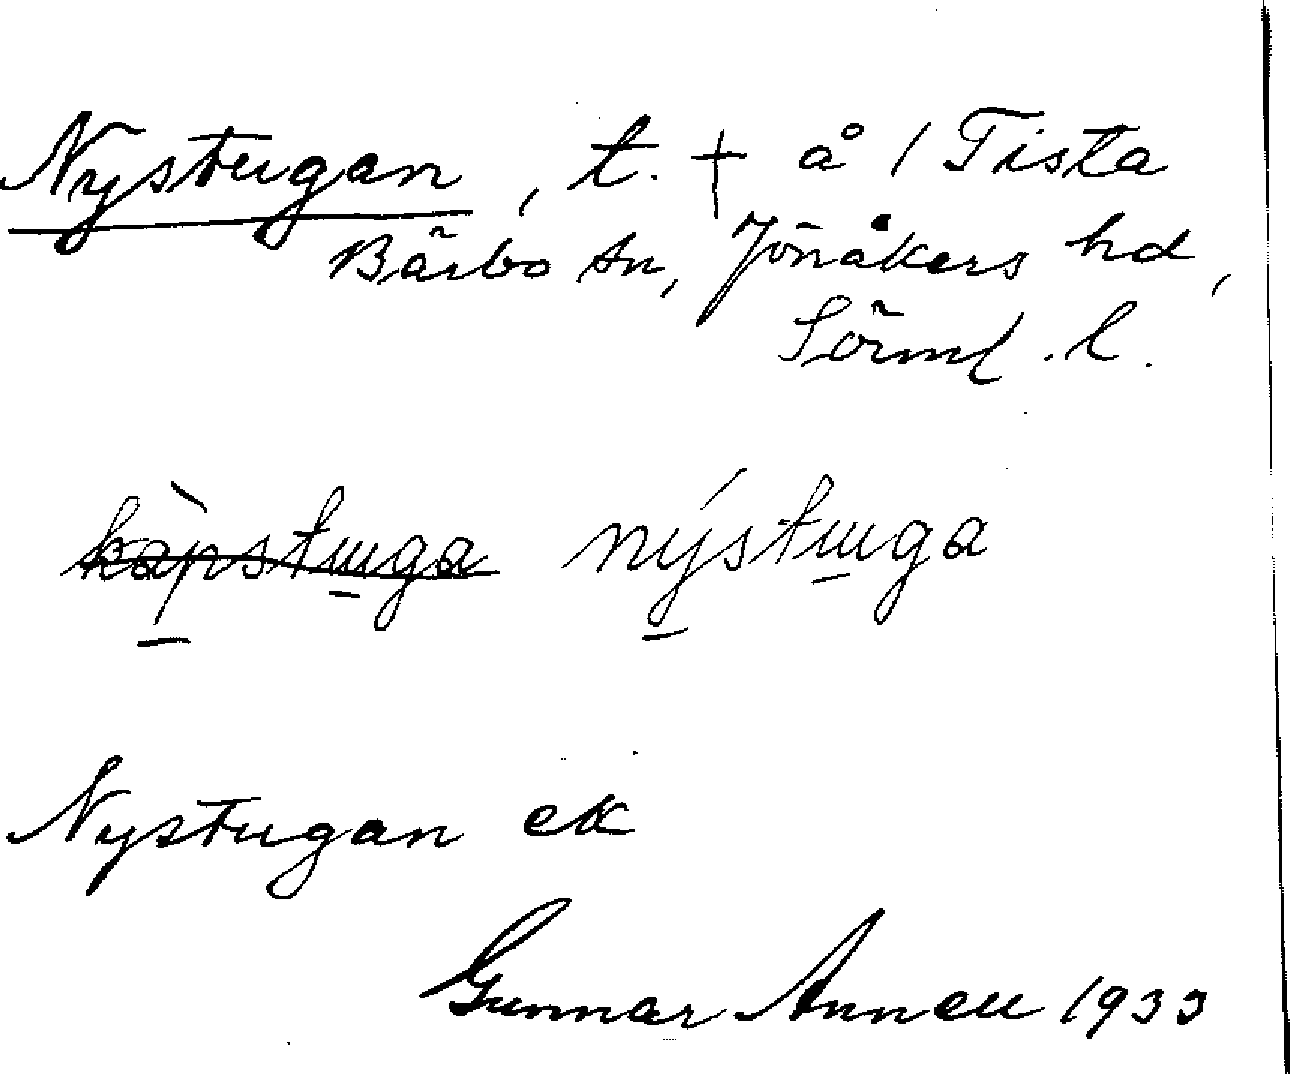 Nystugan, t. † å 1 Tista
Bärbo sn, Jönåkers hd,
Sörml. l.
kàpstuga nýstuga
Nystugan ek
Gunnar Annell 1933